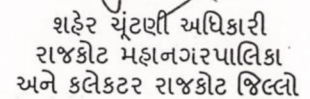 શહેર ચૂંટણી અધિકારી
રાજકોટ મહાનગરપાલિકા
અને કલેકટર રાજકોટ જિલ્લો